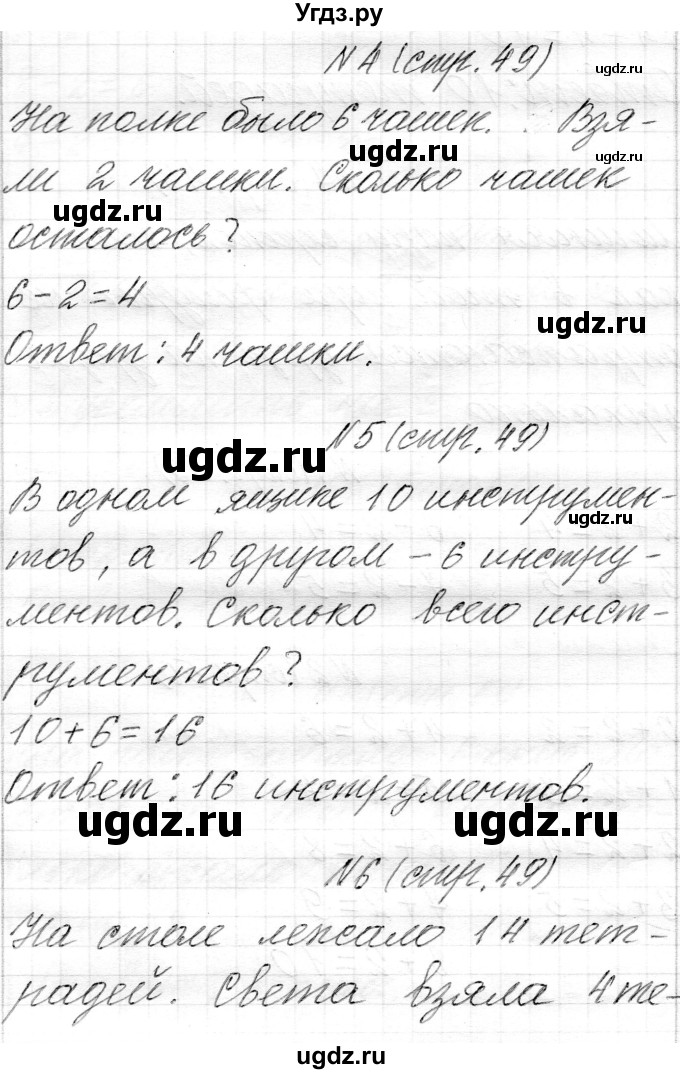 Угдз.ру
N 4 (стр. 49)
ugdz.ru
На полке было 6 чашек. Взя-
ugdz.ru
ugdz.ru
ли 2 чашки. Сколько чашек
ugdz.ru
осталось?
6 - 2 = 4
ugdz.ru
Ответ: 4 чашки.
N 5 (стр. 49)
ugdz.ru
В одном ящике 10 инструмен-
ugdz.ru
тов, а в другом - 6 инстру-
ментов. Сколько всего инст-
рументов?
10 + 6 = 16
Ответ: 16 инструментов.
ugdz.ru
ugdz.ru
N 6 (стр. 49)
На столе лежало 14 тет-
радей. Света взяла 4 те-
ugdz.ru